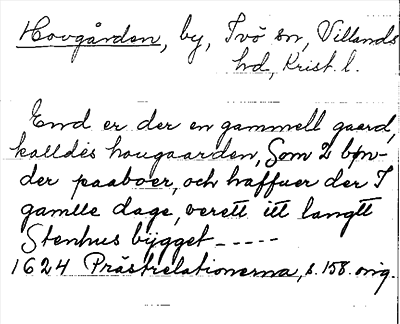 Hovgården, by, Ivö sn, Villands
hd, Krist. l.
End er der en gammell gaard,
kalldes hougaarden, Som 2 bøn-
der paaboer, och haffuer der I
gamlle dage, verett itt langtt
Stenhus bÿgget -----
1624 Prästrelationerna, s. 158. orig.